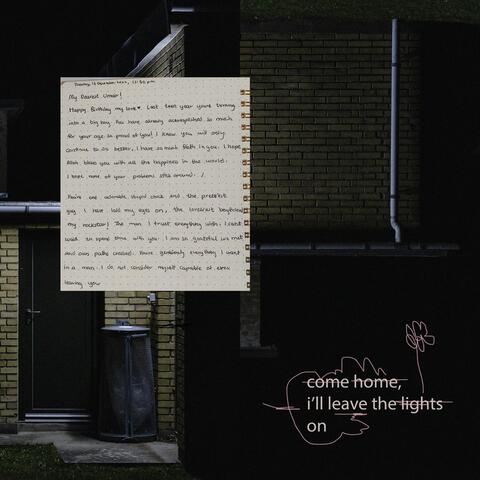 My Dearest Umair!
Happy Birthday my love♥ Last teen year you're turning
into a big boy. You have already accomplished so much
for your age so proud of you! I know you will only
continue to do better, I have so much faith in you. I hope
Allah bless you with all the happiness in the world.
I hope none of your problems stick around. :/
You're one adorable stupid chick and the prettiest
guy I have laid my eyes on, the loveliest boyfriend
my rockstar! The man I trust everything with. I can't
wait to spend time with you. I am so grateful we met
and our paths crossed. You're genuinely everything I want
in a man. I do not consider myself capable of ever
leaving you
come home,
i'll leave the lights
on